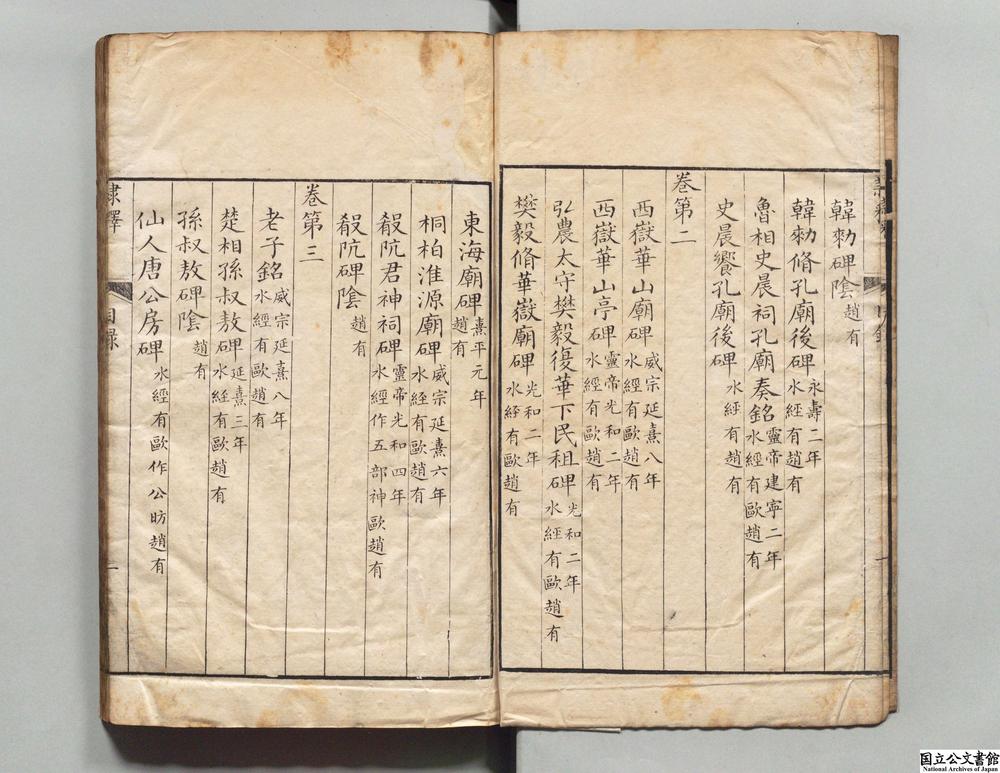 韓勑碑陰趙有
韓勑脩孔廟後碑永壽二年水經有趙有
魯相史晨祠孔廟奏銘靈帝建寧二年水經有歐趙有
史晨饗孔廟後碑水經有趙有
卷第二
西嶽華山廟碑威宗延熹八年水經有歐趙有
西嶽華山亭碑靈帝光和二年水經有歐趙有
弘農太守樊毅復華下民租碑光和二年水經有歐趙有
樊毅脩華嶽廟碑光和二年水經有歐趙有
東海廟碑熹平元年趙有
桐柏淮源廟碑威宗延熹六年水經有歐趙有
殽阬君神祠碑靈帝光和四年水經作五部神歐趙有
殽阬碑陰趙有
卷第三
老子銘威宗延熹八年水經有歐趙有
楚相孫叔敖碑延熹三年水經有歐趙有
孫叔敖碑陰趙有
仙人唐公房碑水經有歐作公昉趙有
隸釋 目錄 一
国立公文書館
National Archives of Japan